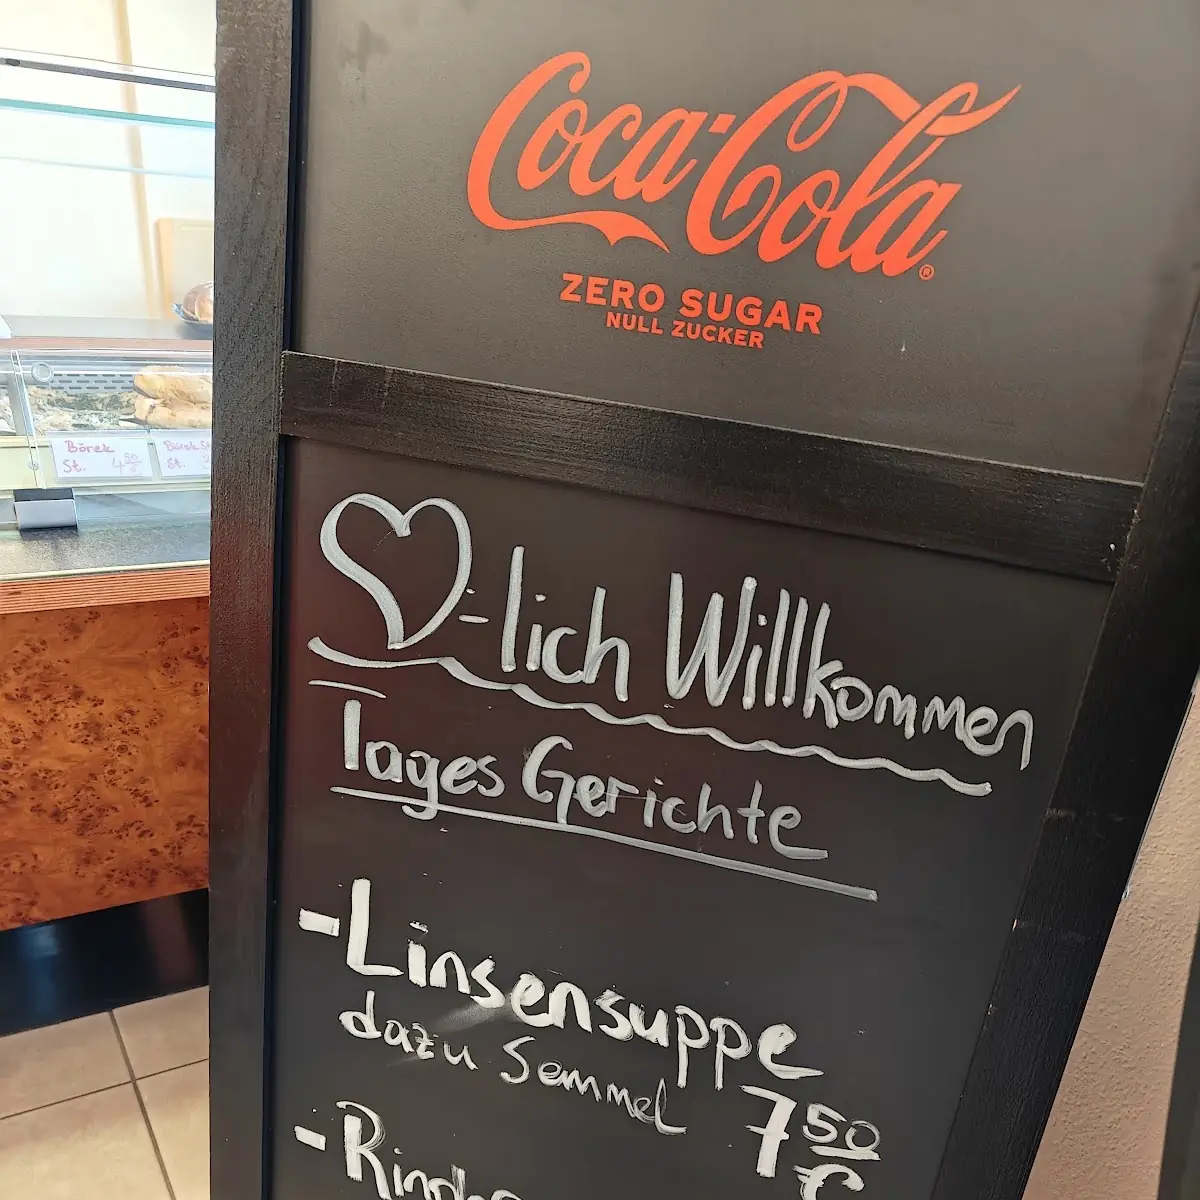 Coca-Cola®
ZERO SUGAR
NULL ZUCKER
Börek
St. 4 50
Börek
St.
♡-lich Willkommen
Tages Gerichte
-Linsensuppe
dazu Semmel
7 50 €